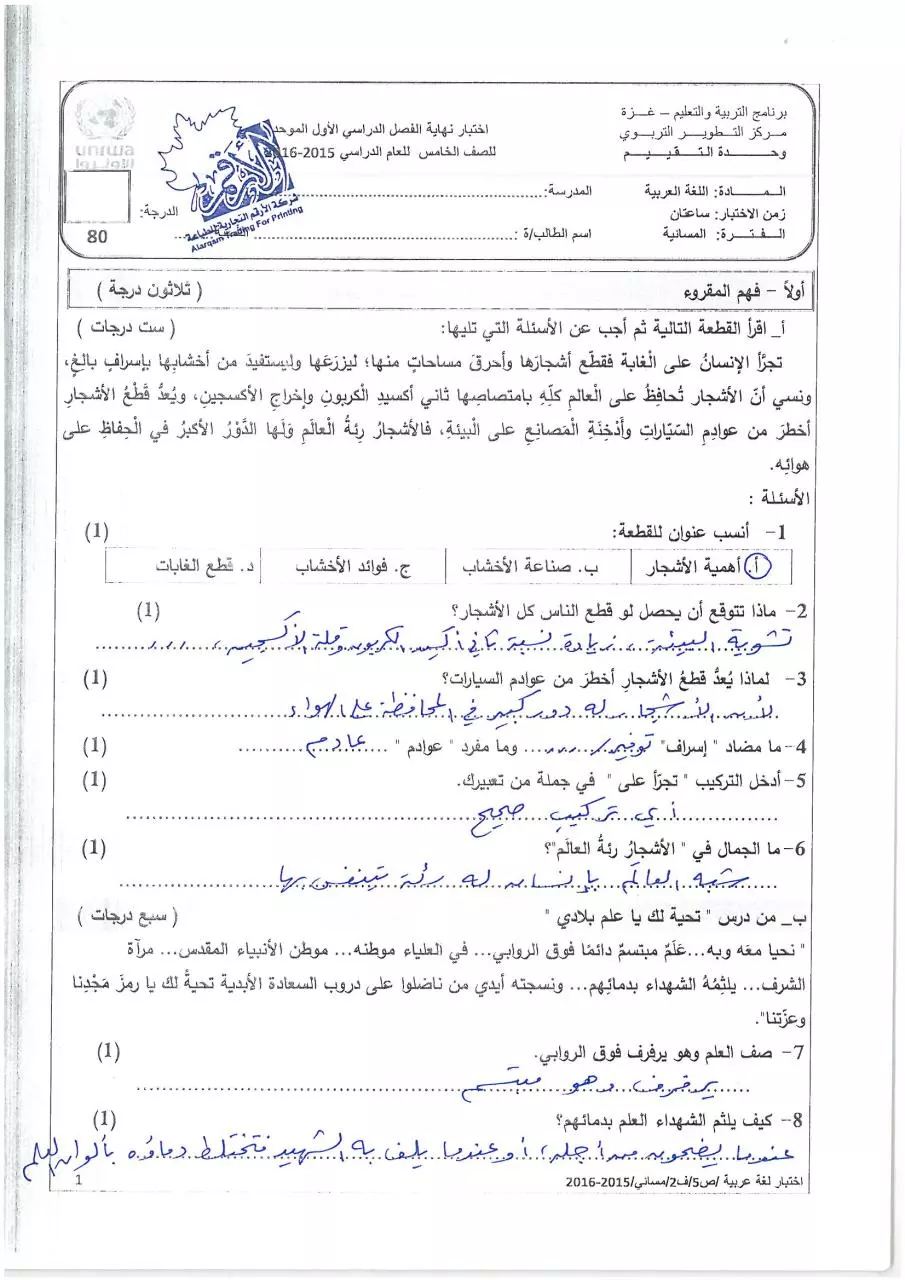 برنامج التربية والتعليم – غـــزة
مركز التطويـر التربوي
وحـــدة التـقـيـيـم
اختبار نهاية الفصل الدراسي الأول الموحد
للصف الخامس للعام الدراسي 2015-2016
unrwa
الأونروا
المـــــادة: اللغة العربية
المدرسة:
زمن الاختبار: ساعتان
الدرجة:
الفـــتـرة: المسائية
اسم الطالب/ة :
80
الأرقم
شركة الأرقم التجارية للطباعة
Alarqam Trading For Printing
أولاً – فهم المقروء ( ثلاثون درجة )
أ_ اقرأ القطعة التالية ثم أجب عن الأسئلة التي تليها: ( ست درجات )
تجرَّأ الإنسانُ على الْغابة فقطَّع أشجارَها وأحرقَ مساحاتٍ منها؛ ليزرَعَها وليستفيدَ من أخشابِها بإسرافٍ بالِغٍ،
ونسي أنّ الأشجار تُحافظُ على الْعالمِ كلّهِ بامتصاصِها ثاني أكسيدِ الكربونِ وإخراجِ الأكسجينِ، ويُعدُّ قَطْعُ الأشجارِ
أخطرَ من عوادِمِ السّيّاراتِ وأَدْخِنَةِ الْمَصانِعِ على الْبيئةِ، فالأشجارُ رِئةُ الْعالَمِ ولَها الدَّوْرُ الأكبرُ في الْحِفاظِ على
هوائِه.
الأسئلة :
1- أنسب عنوان للقطعة: (1)
أ. أهمية الأشجار ب. صناعة الأخشاب ج. فوائد الأخشاب د. قطع الغابات
2- ماذا تتوقع أن يحصل لو قطع الناس كل الأشجار؟ (1)
تشوية البيئة ، زيادة نسبة ثاني أكسيد الكربون وقلة الأكسجين ، ...
3- لماذا يُعدُّ قطعُ الأشجارِ أخطرَ من عوادم السيارات؟ (1)
لأن الأشجار له دور كبير في المحافظة على الهواء
4- ما مضاد " إسراف" توفير ..... وما مفرد " عوادم " عادم (1)
5- أدخل التركيب " تجرّأ على " في جملة من تعبيرك. (1)
أي تركيب صحيح
6- ما الجمال في " الأشجارُ رئةُ العالَم"؟ (1)
شبه العالَم بإنسان له رئة يتنفس بها
ب_ من درس " تحية لك يا علم بلادي " ( سبع درجات )
" نحيا معَه وبه...عَلَمٌ مبتسمٌ دائمًا فوق الروابي... في العلياء موطنه... موطن الأنبياء المقدس... مرآة
الشرف... يلثِمُهُ الشهداء بدمائِهم... ونسجته أيدي من ناضلوا على دروب السعادة الأبدية تحيةُ لك يا رمزَ مَجْدِنا
وعزّتنا".
7- صف العلم وهو يرفرف فوق الروابي. (1)
يرفرف وهو مبتسم
8- كيف يلثم الشهداء العلم بدمائهم؟ (1)
عندما يضحون من أجله، أو عندما يلف به الشهيد فتختلط دماؤه بألوان العلم
اختبار لغة عربية /ص5/ف2/مسائي/2015-2016 1